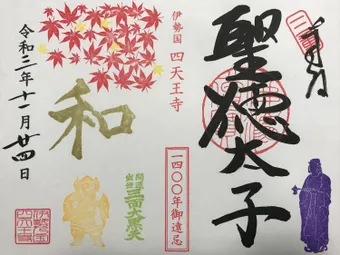 聖徳太子
伊勢国 四天王寺
一四〇〇年御遠忌
和
開運
出世
三面大黒天
令和三年十一月廿四日